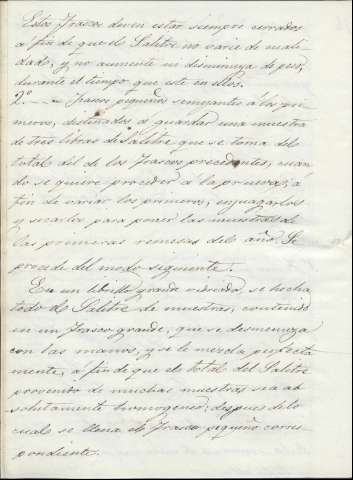 Estos Frascos deven estar siempre cerrados
á fin de que el Salitre no varie de cuali-
dad, y no aumente ni disminuya de peso,
durante el tiempo que este en ellos.
2º. - - Frascos pequeños semejantes á los pri-
meros, destinados á guardar una muestra
de tres libras de Salitre que se toma del
total del de los Frascos precedentes, cuan-
do se quiere proceder á la prueva, á
fin de variar los primeros, enjuagarlos
y secarlos para poner las muestras de
las primeras remesas del año. Se
procede del modo siguiente.
En un librillo grande vidriado, se hecha
todo el Salitre de muestras, contenido
en un Frasco grande, que se desmenuza
con las manos, y se le mezcla perfecta
mente, á fin de que el total del Salitre
provenido de muchas muestras sea ab-
solutamente homogeneo; despues de lo
cual se llena el Frasco pequeño corres-
pondiente.